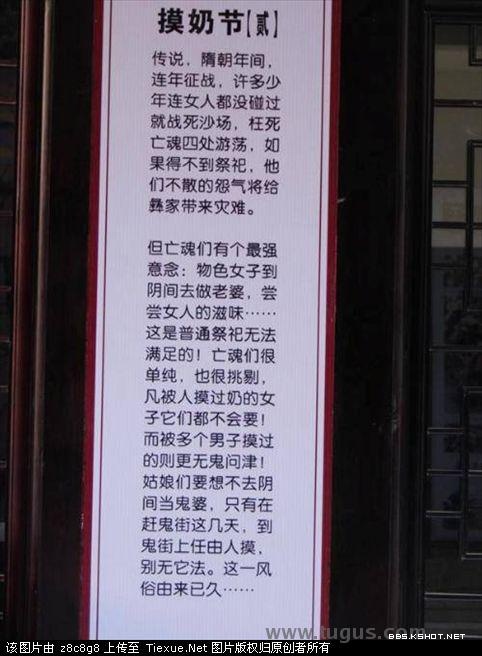 摸奶节【贰】
传说，隋朝年间，
连年征战，许多少
年连女人都没碰过
就战死沙场，枉死
亡魂四处游荡，如
果得不到祭祀，他
们不散的怨气将给
彝家带来灾难。
但亡魂们有个最强
意念：物色女子到
阴间去做老婆，尝
尝女人的滋味……
这是普通祭祀无法
满足的！亡魂们很
单纯，也很挑剔，
凡被人摸过奶的女
子它们都不会要！
而被多个男子摸过
的则更无鬼问津！
姑娘们要想不去阴
间当鬼婆，只有在
赶鬼街这几天，到
鬼街上任由人摸，
别无它法。这一风
俗由来已久……
www.tugus.com
BBS.KSHOT.NET
该图片由 z8c8g8 上传至 Tiexue.Net 图片版权归原创者所有